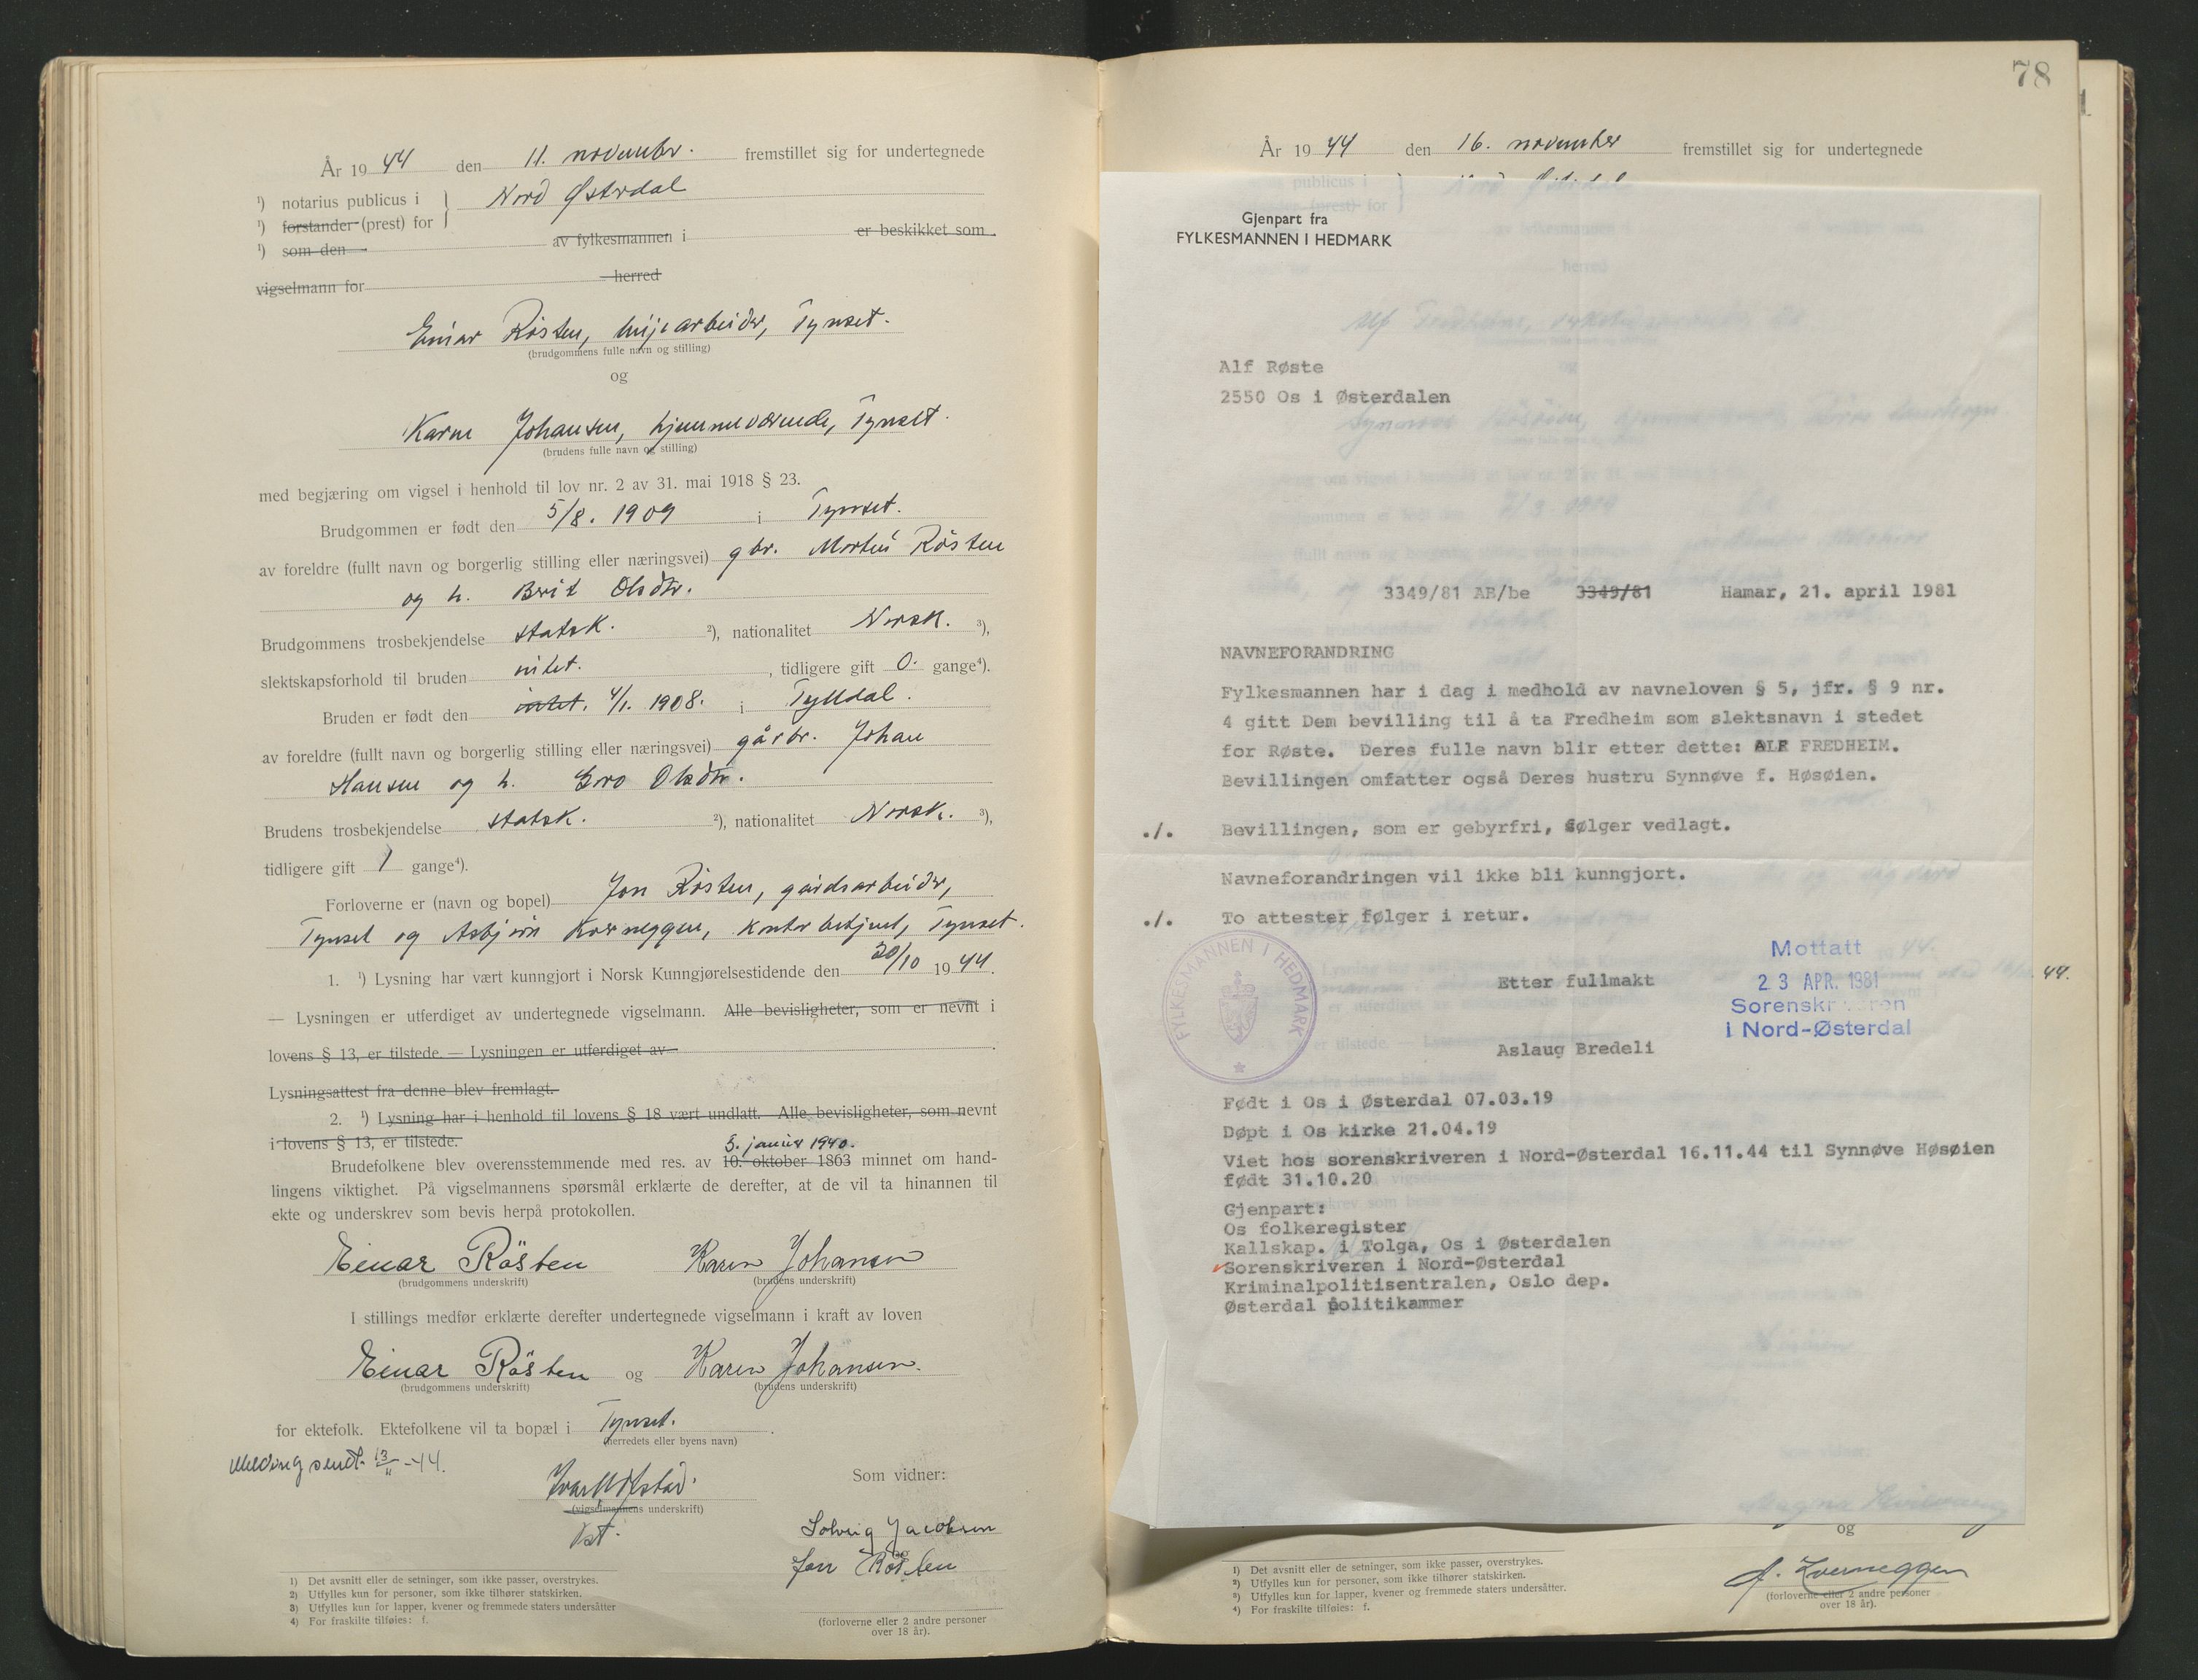 År 1944 den 11. novembr. fremstillet sig for undertegnede
¹) notarius publicus i } Nord Østrdal
¹) forstander (prest) for
¹) som den av fylkesmannen i er beskikket som
vigselmann for herred
Einar Røsten, linjearbeider, Tynset.
(brudgommens fulle navn og stilling)
og
Karen Johansen, hjemmeværende, Tynset.
(brudens fulle navn og stilling)
med begjæring om vigsel i henhold til lov nr. 2 av 31. mai 1918 § 23.
Brudgommen er født den 5/8. 1909 i Tynset.
av foreldre (fullt navn og borgerlig stilling eller næringsvei) gbr. Morten Røsten
og h. Brit Olsdtr.
Brudgommens trosbekjendelse statsk. ²), nationalitet Norsk. ³),
slektskapsforhold til bruden intet. , tidligere gift 0. gange⁴).
Bruden er født den intet. 4/1. 1908. i Tylldal.
av foreldre (fullt navn og borgerlig stilling eller næringsvei) gårbr. Johan
Hansen og h. Gro Olsdtr.
Brudens trosbekjendelse statsk. ²), nationalitet Norsk. ³),
tidligere gift 1 gange⁴).
Forloverne er (navn og bopel) Jon Røsten, gårdsarbeider,
Tynset og Asbjørn Kverneggen, kontorbetjent, Tynset.
1. ¹) Lysning har vært kunngjort i Norsk Kunngjørelsestidende den 20/10 1944.
— Lysningen er utferdiget av undertegnede vigselmann. Alle bevisligheter, som er nevnt i
lovens § 13, er tilstede. — Lysningen er utferdiget av .
Lysningsattest fra denne blev fremlagt.
2. ¹) Lysning har i henhold til lovens § 18 vært undlatt. Alle bevisligheter, som nevnt
i lovens § 13, er tilstede.
5. januar 1940.
Brudefolkene blev overensstemmende med res. av 10. oktober 1863 minnet om hand-
lingens viktighet. På vigselmannens spørsmål erklærte de derefter, at de vil ta hinannen til
ekte og underskrev som bevis herpå protokollen.
Einar Rösten Karen Johansen
(brudgommens underskrift) (brudens underskrift)
I stillings medfør erklærte derefter undertegnede vigselmann i kraft av loven
Einar Rösten og Karen Johansen.
(brudgommens underskrift) (brudens underskrift)
for ektefolk. Ektefolkene vil ta bopæl i Tynset.
(herredets eller byens navn)
Melding sendt 13/11-44.
Som vidner:
(vigselmannens underskrift)
Solveig Jacobsen
Jon Røsten
(forloverne eller 2 andre personer
over 18 år).
1) Det avsnitt eller de setninger, som ikke passer, overstrykes.
2) Utfylles kun for personer, som ikke tilhører statskirken.
3) Utfylles kun for lapper, kvener og fremmede staters undersåtter
4) For fraskilte tilføies: f.
78
År 1944 den 16. november fremstillet sig for undertegnede
Gjenpart fra
FYLKESMANNEN I HEDMARK
Alf Røste
2550 Os i Østerdalen
3349/81 AB/be 3349/81 Hamar, 21. april 1981
NAVNEFORANDRING
Fylkesmannen har i dag i medhold av navneloven § 5, jfr. § 9 nr.
4 gitt Dem bevilling til å ta Fredheim som slektsnavn i stedet
for Røste. Deres fulle navn blir etter dette: ALF FREDHEIM.
Bevillingen omfatter også Deres hustru Synnøve f. Høsøien.
./. Bevillingen, som er gebyrfri, følger vedlagt.
Navneforandringen vil ikke bli kunngjort.
./. To attester følger i retur.
FYLKESMANNEN I HEDMARK
Etter fullmakt
Mottatt
23 APR. 1981
Sorenskriveren
i Nord-Østerdal
44.
Aslaug Bredeli
Født i Os i Østerdal 07.03.19
Døpt i Os kirke 21.04.19
Viet hos sorenskriveren i Nord-Østerdal 16.11.44 til Synnøve Høsøien
født 31.10.20
Gjenpart:
Os folkeregister
Kallskap. i Tolga, Os i Østerdalen
Sorenskriveren i Nord-Østerdal
Kriminalpolitisentralen, Oslo dep.
Østerdal politikammer
og
A. Kverneggen
(forloverne eller 2 andre personer
over 18 år).
1) Det avsnitt eller de setninger, som ikke passer, overstrykes.
2) Utfylles kun for personer, som ikke tilhører statskirken.
3) Utfylles kun for lapper, kvener og fremmede staters undersåtter.
4) For fraskilte tilføies: f.